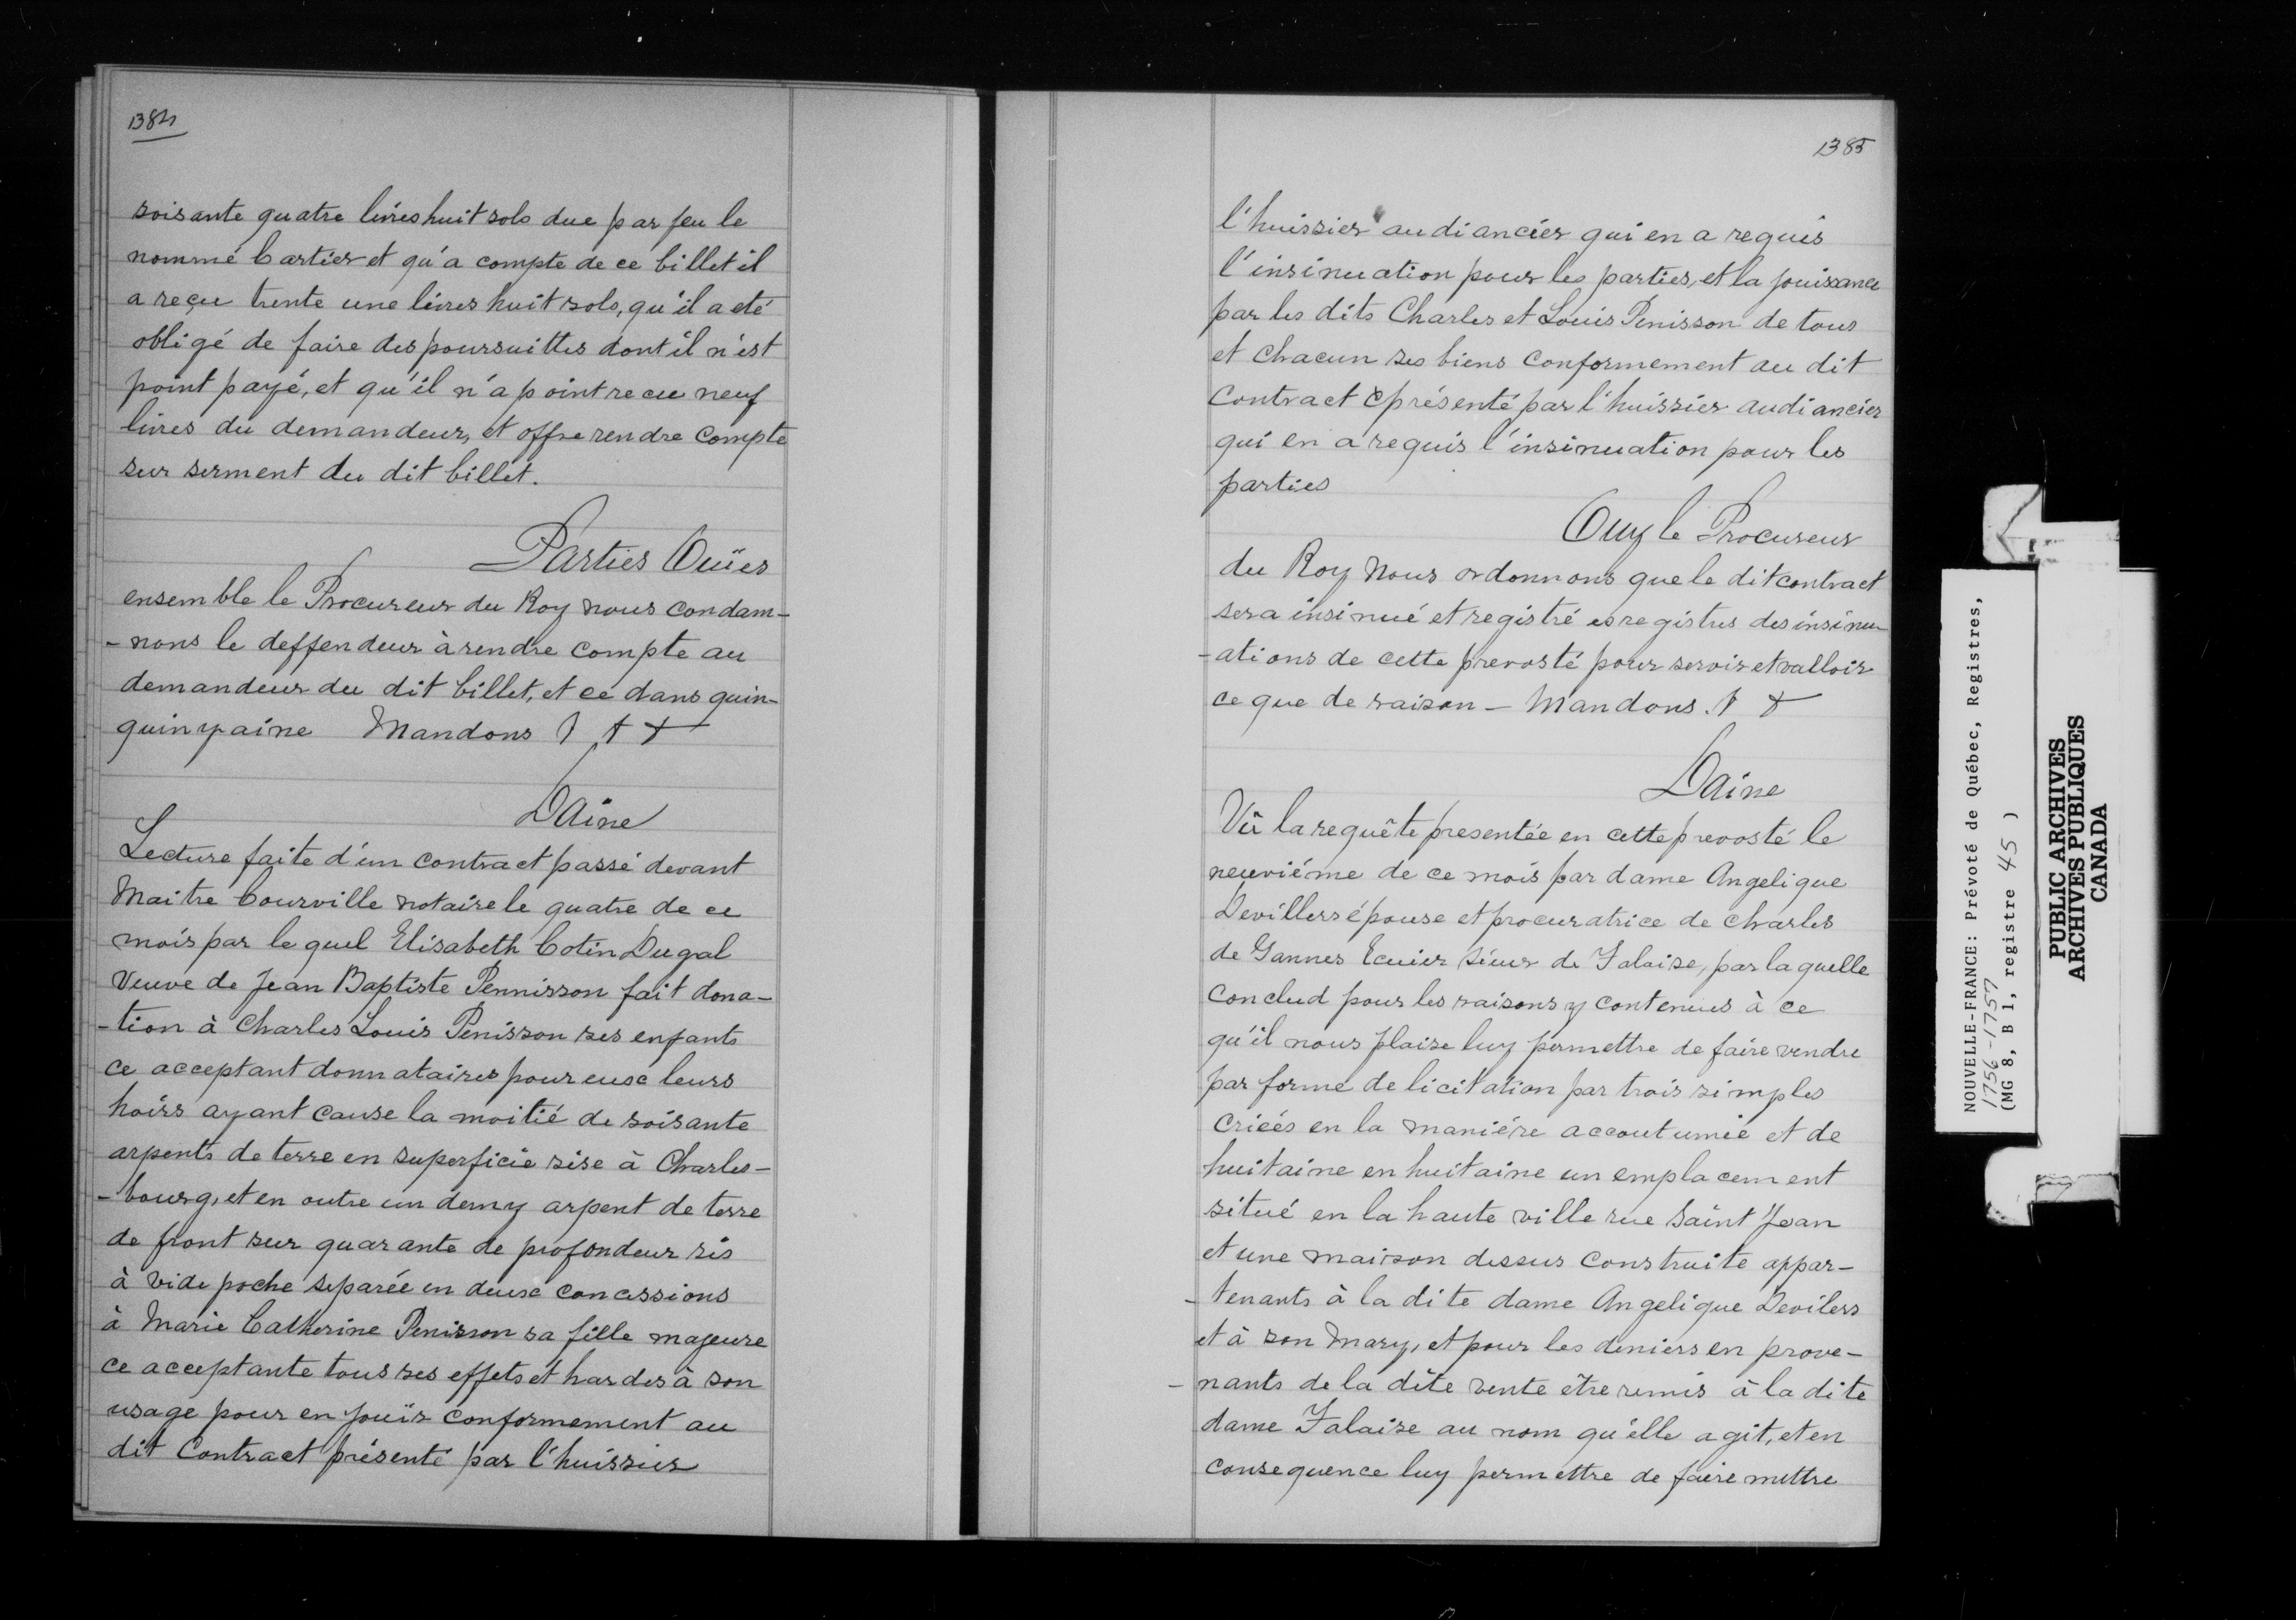 1384
soisante quatre livres huit sols due par feu le
nommé Cartier et qu'a compte de ce billet il
a reçu trente une livres huit sols, qu'il a eté
obligé de faire des poursuittes dont il n'est
point payé, et qu'il n'a point recu neuf
livres du demandeur, et offre rendre compte
sur serment du dit billet.
Parties Ouïes
ensemble le Procureur du Roy nous condam-
-nons le deffendeur à rendre compte au
demandeur du dit billet, et ce dans quin-
quinzaine Mandons
Daine
Lecture faite d'un contract passé devant
Maitre Courville notaire le quatre de ce
mois par le quel Elisabeth Cotin Dugal
Veuve de Jean Baptiste Pennisson fait dona-
-tion à Charles Louis Penisson ses enfants
ce acceptant donnataires pour euse leurs
hoirs ayant cause la moitié de soisante
arpents de terre en superficie sise à Charles-
-bourg, et en outre un demy arpent de terre
de front sur quarante de profondeur sis
à vide poche separée en deuse concessions
à Marie Catherine Penisson sa fille majeure
ce acceptante tous ses effets et hardes à son
usage pour en jouïr conformement au
dit Contract présenté par l'huissier
1385
l'huissier audiancier qui en a requis
l'insinuation pour les parties, et la jouisance
par les dits Charles et Louis Penisson de tous
et chacun ses biens conformement au dit
Contract présenté par l'huissier audiancier
qui en a requis l'insinuation pour les
parties
Ouy le Procureur
du Roy nous ordonnons que le dit contract
sera insinué et registré es registres des insinu-
-ations de cette prevosté pour servir et valloir
ce que de raison - Mandons
Daine
Vû la requête presentée en cette prevosté le
neuviéme de ce mois par dame Angelique
Devillers épouse et procuratrice de Charles
de Gannes Ecuier sieur de Falaise, par laquelle
conclud pour les raisons y contenues à ce
qu'il nous plaise luy permettre de faire vendre
par forme de licitation par trois simples
criées en la maniére accoutumée et de
huitaine en huitaine un emplacement
situé en la haute ville rue Saint Jean
et une maison dessus construite appar-
-tenants à la dite dame Angelique Devilers
et à son Mary, et pour les deniers en prove-
-nants de la dite vente être remis à la dite
dame Falaise au nom qu'elle agit, et en
consequence luy permettre de faire mettre
NOUVELLE-FRANCE: Prévoté de Québec, Registres,
1756-1757
(MG 8, B 1, registre 45 )
PUBLIC ARCHIVES
ARCHIVES PUBLIQUES
CANADA